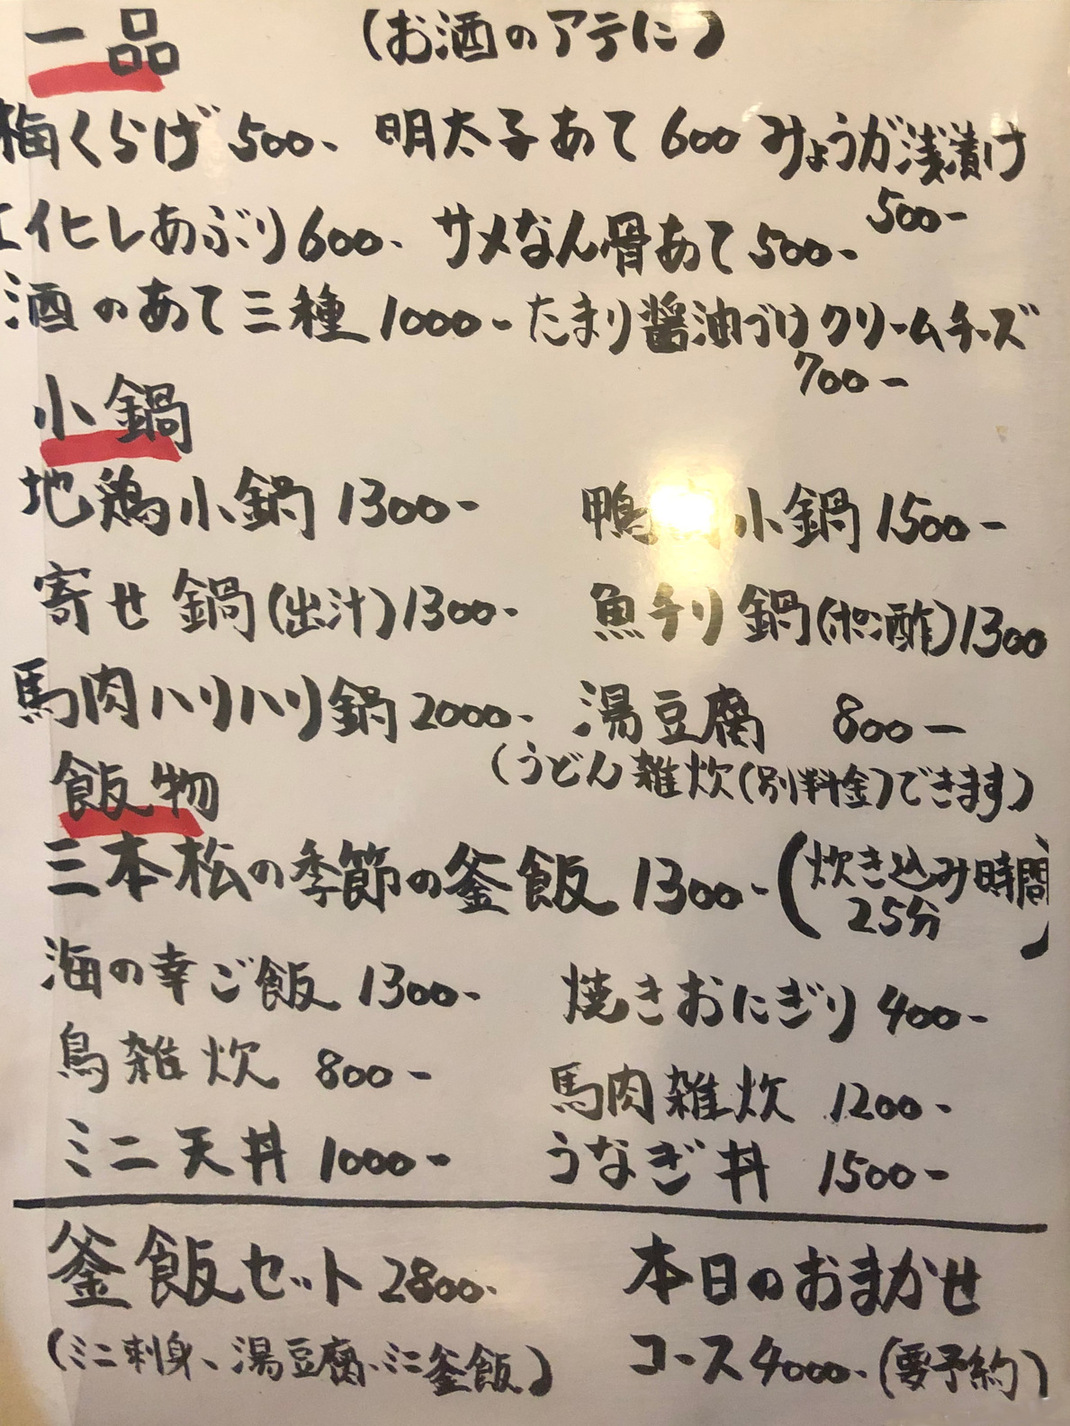 一品 (お酒のアテに)
梅くらげ 500- 明太子あて 600 みょうが浅漬け
500-
エイヒレあぶり 600- サメなん骨あて 500-
酒のあて三種 1000- たまり醤油づけクリームチーズ
700-
小鍋
地鶏小鍋 1300- 鴨 小鍋 1500-
寄せ鍋(出汁)1300- 魚チリ鍋(ポン酢)1300
馬肉ハリハリ鍋 2000- 湯豆腐 800-
(うどん雑炊(別料金)できます)
飯物
三本松の季節の釜飯 1300- (炊き込み時間
25分)
海の幸ご飯 1300- 焼きおにぎり 400-
鳥雑炊 800- 馬肉雑炊 1200-
ミニ天丼 1000- うなぎ丼 1500-
釜飯セット 2800- 本日のおまかせ
(ミニ刺身、湯豆腐、ミニ釜飯) コース4000-(要予約)